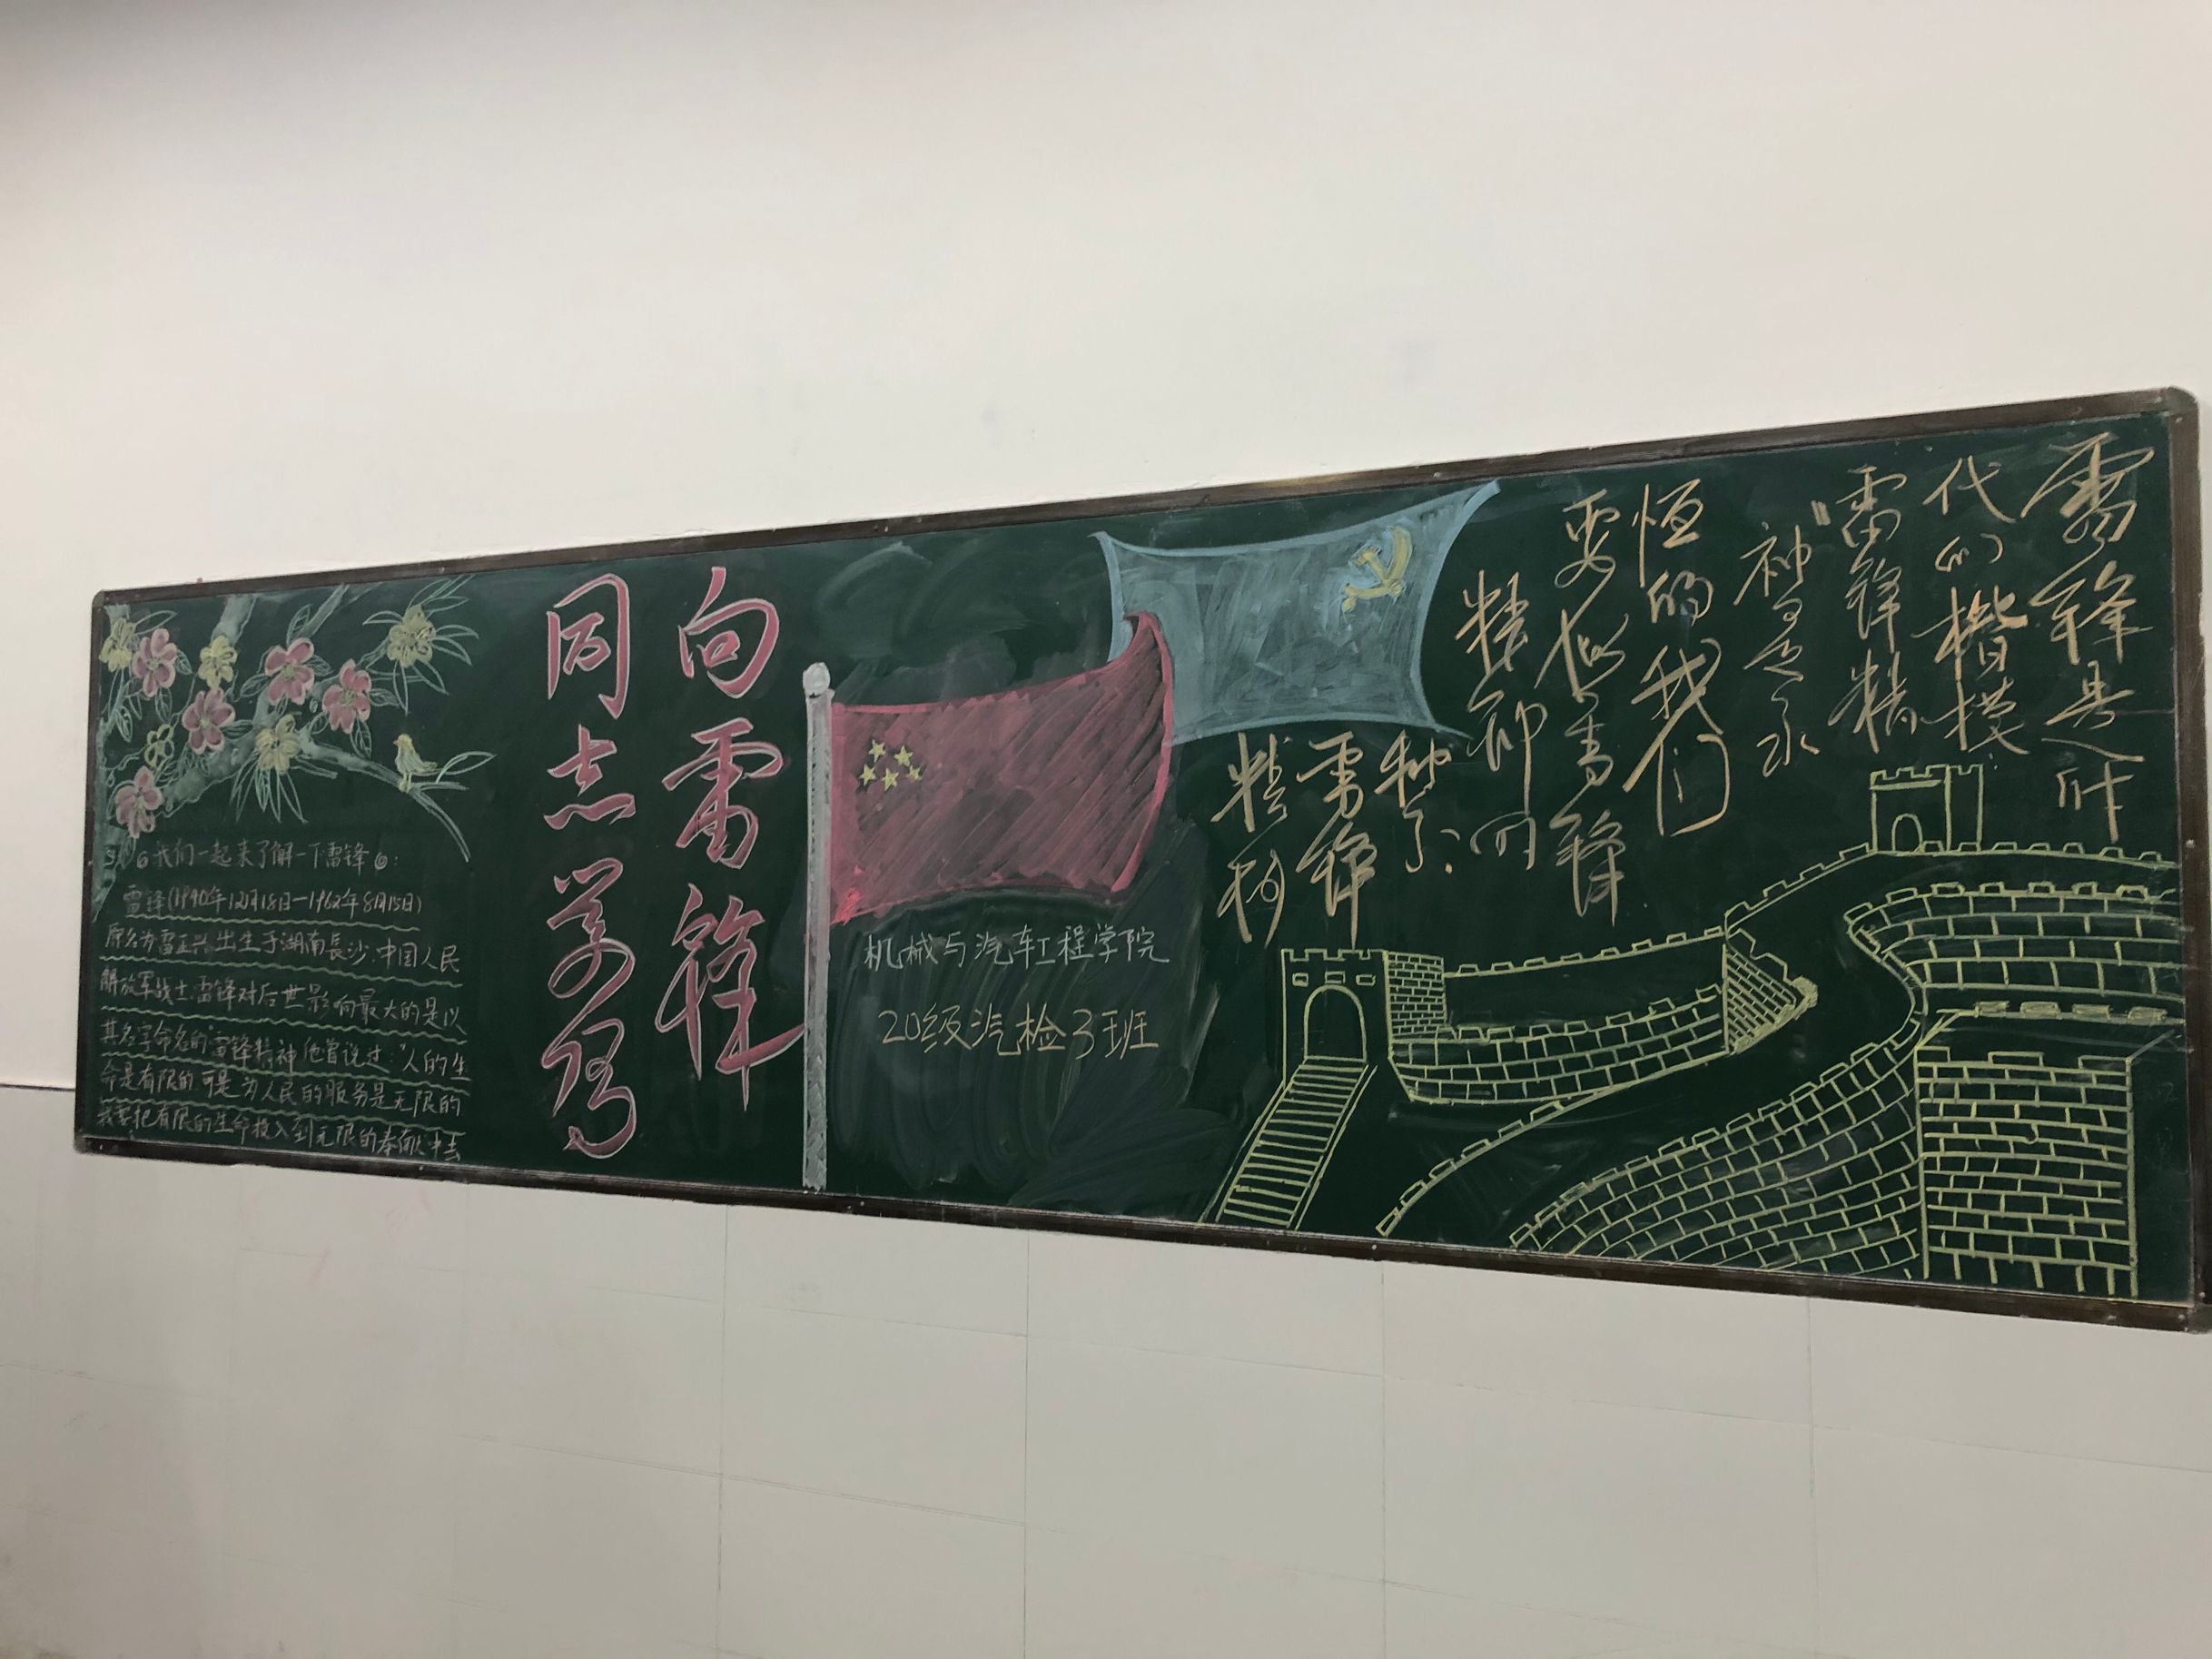 我们一起来了解一下雷锋:
雷锋(1940年12月18日—1962年8月15日)
原名为雷正兴,出生于湖南長沙.中国人民
解放军战士.雷锋对后世影响最大的是以
其名字命名的"雷锋精神他曾说过:"人的生
命是有限的可是为人民的服务是无限的
我要把有限的生命投入到无限的奉献中去
向雷锋
同志学习
机械与汽车工程学院
20级汽检3班
雷锋是一时
代的楷模
雷锋精
神是永
恒的我们
要向雷锋
精神
雷锋
精神